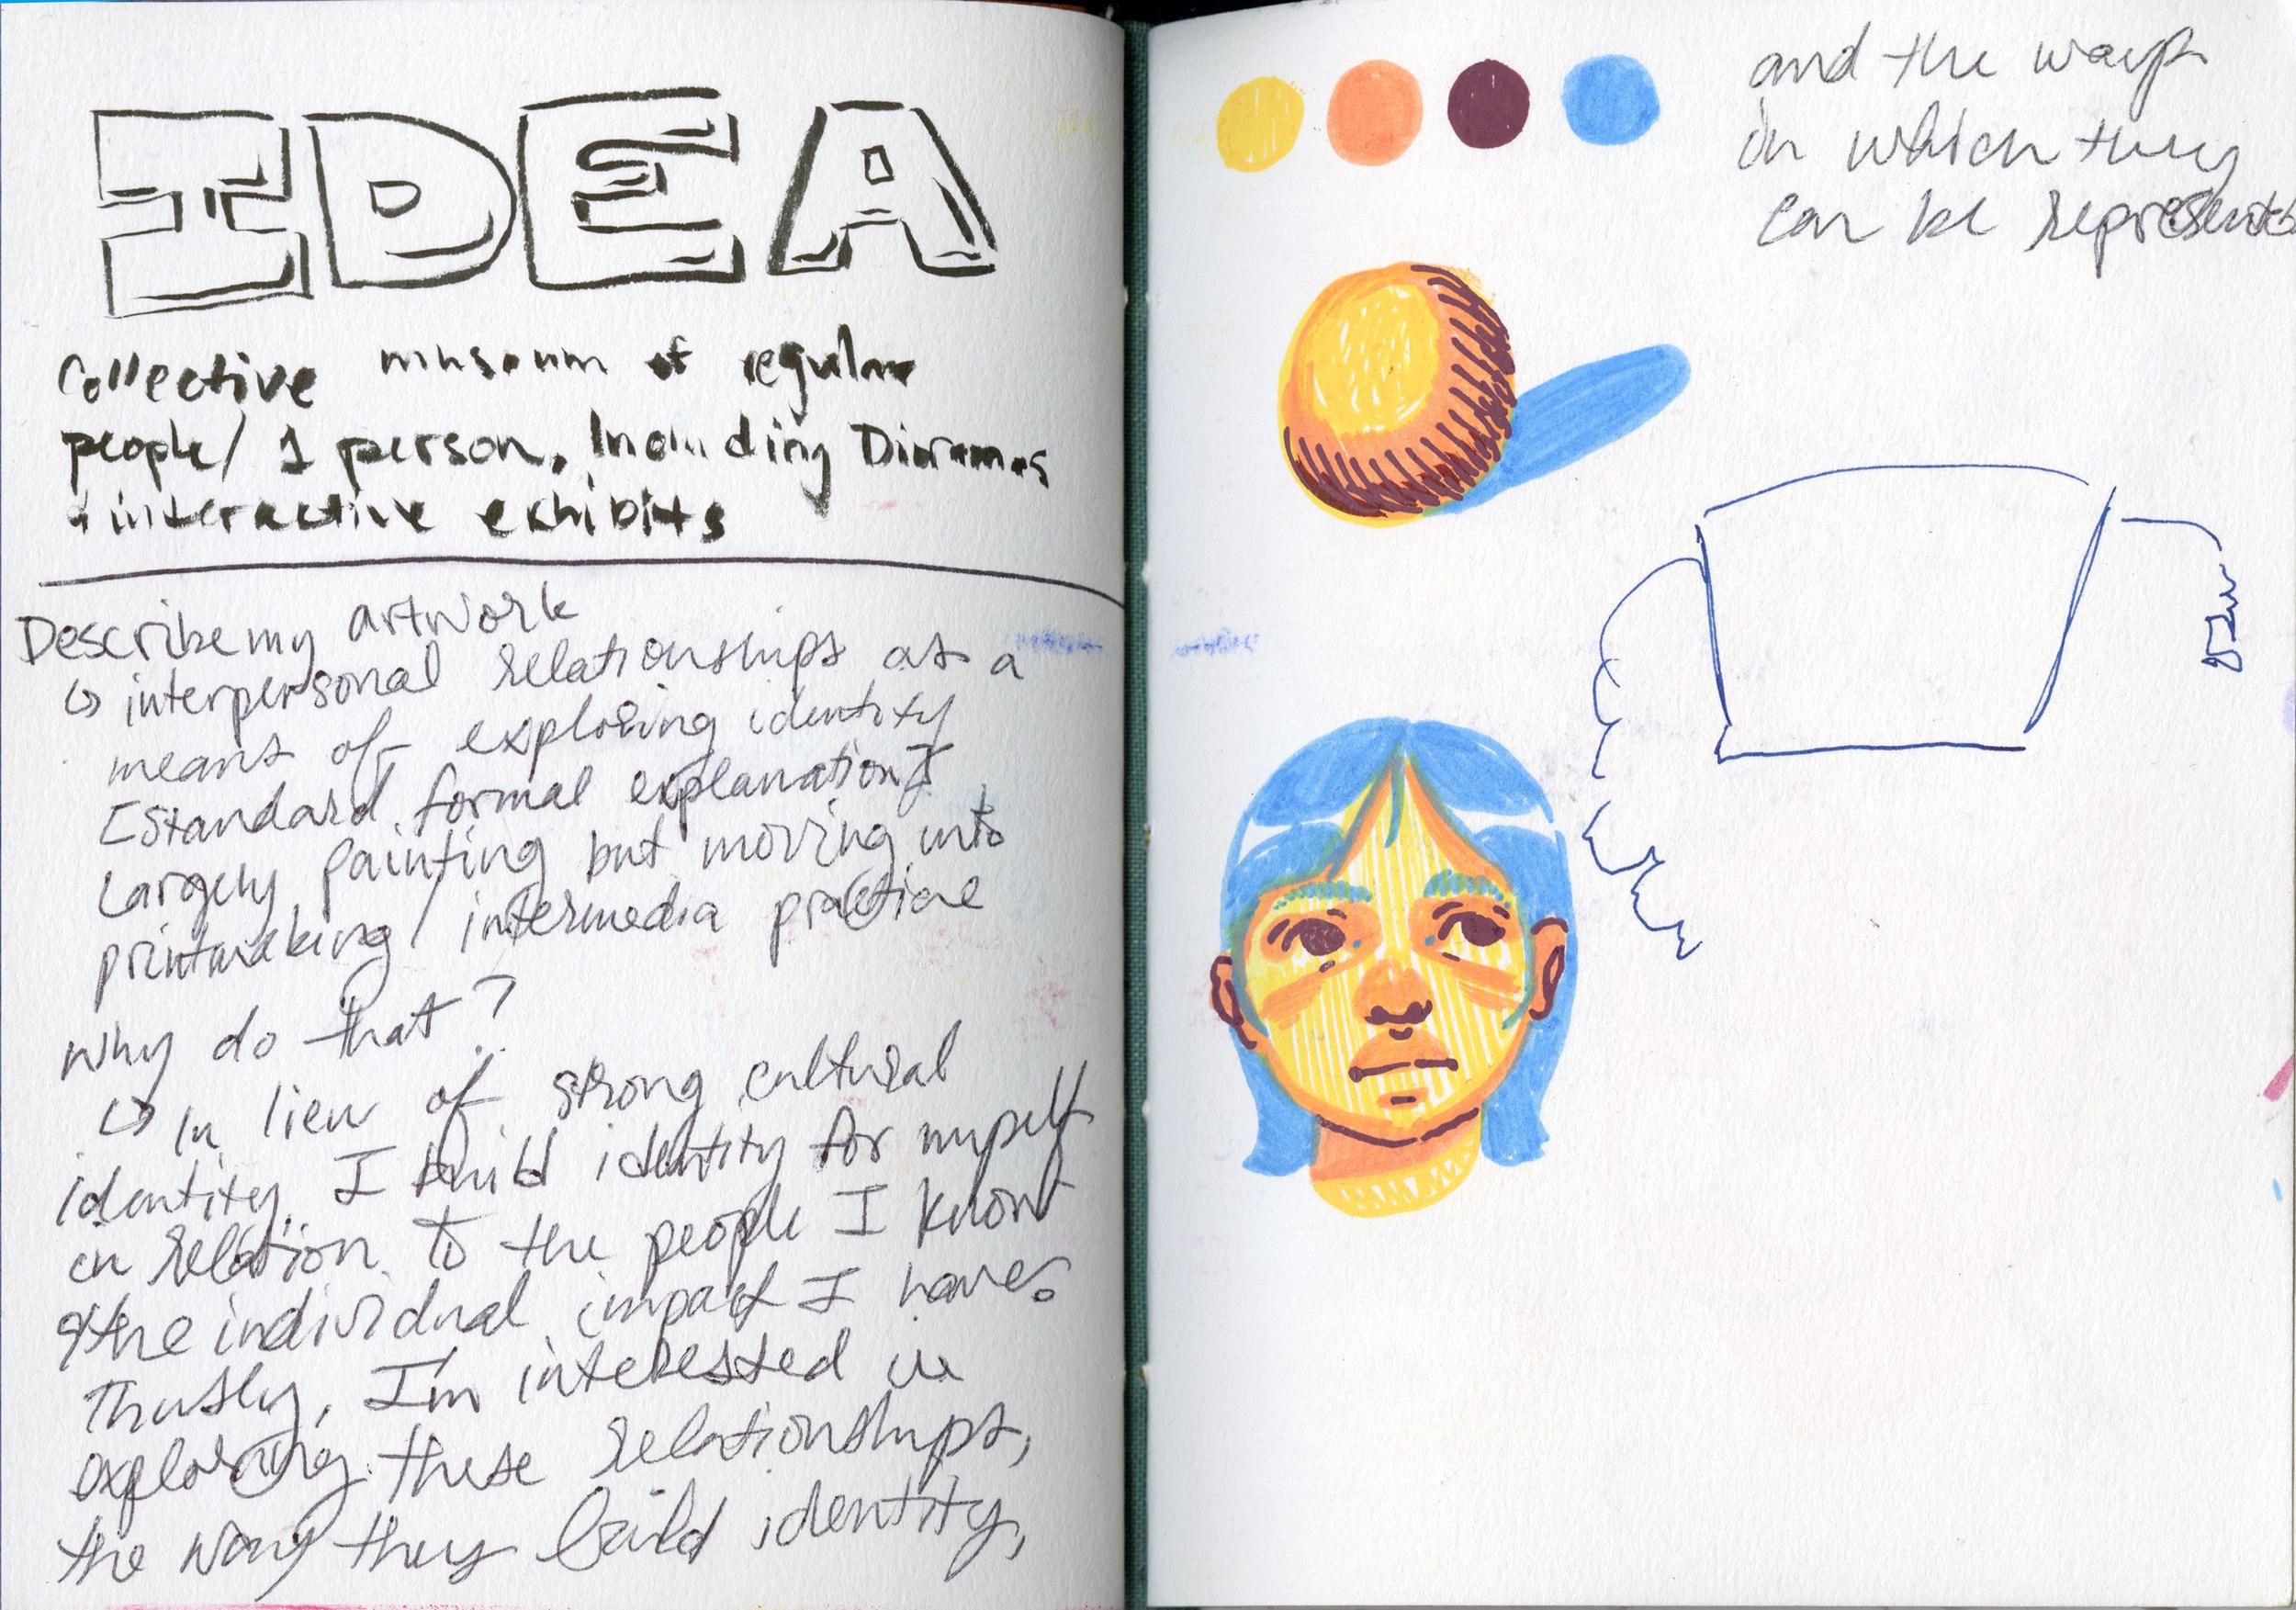 IDEA
Collective museum of regular
people/ 1 person, Including Dioramas
+ interactive exhibits
Describe my artwork
↳ interpersonal relationships as a
means of exploring identity
[standard formal explanation]
Largely painting but moving into
printmaking/ intermedia practice
Why do that?
↳ In lieu of strong cultural
identity, I build identity for myself
in relation to the people I know
& the individual impact I have.
Thusly, I'm interested in
exploring these relationships,
the way they build identity,
and the ways
in which they
can be represented